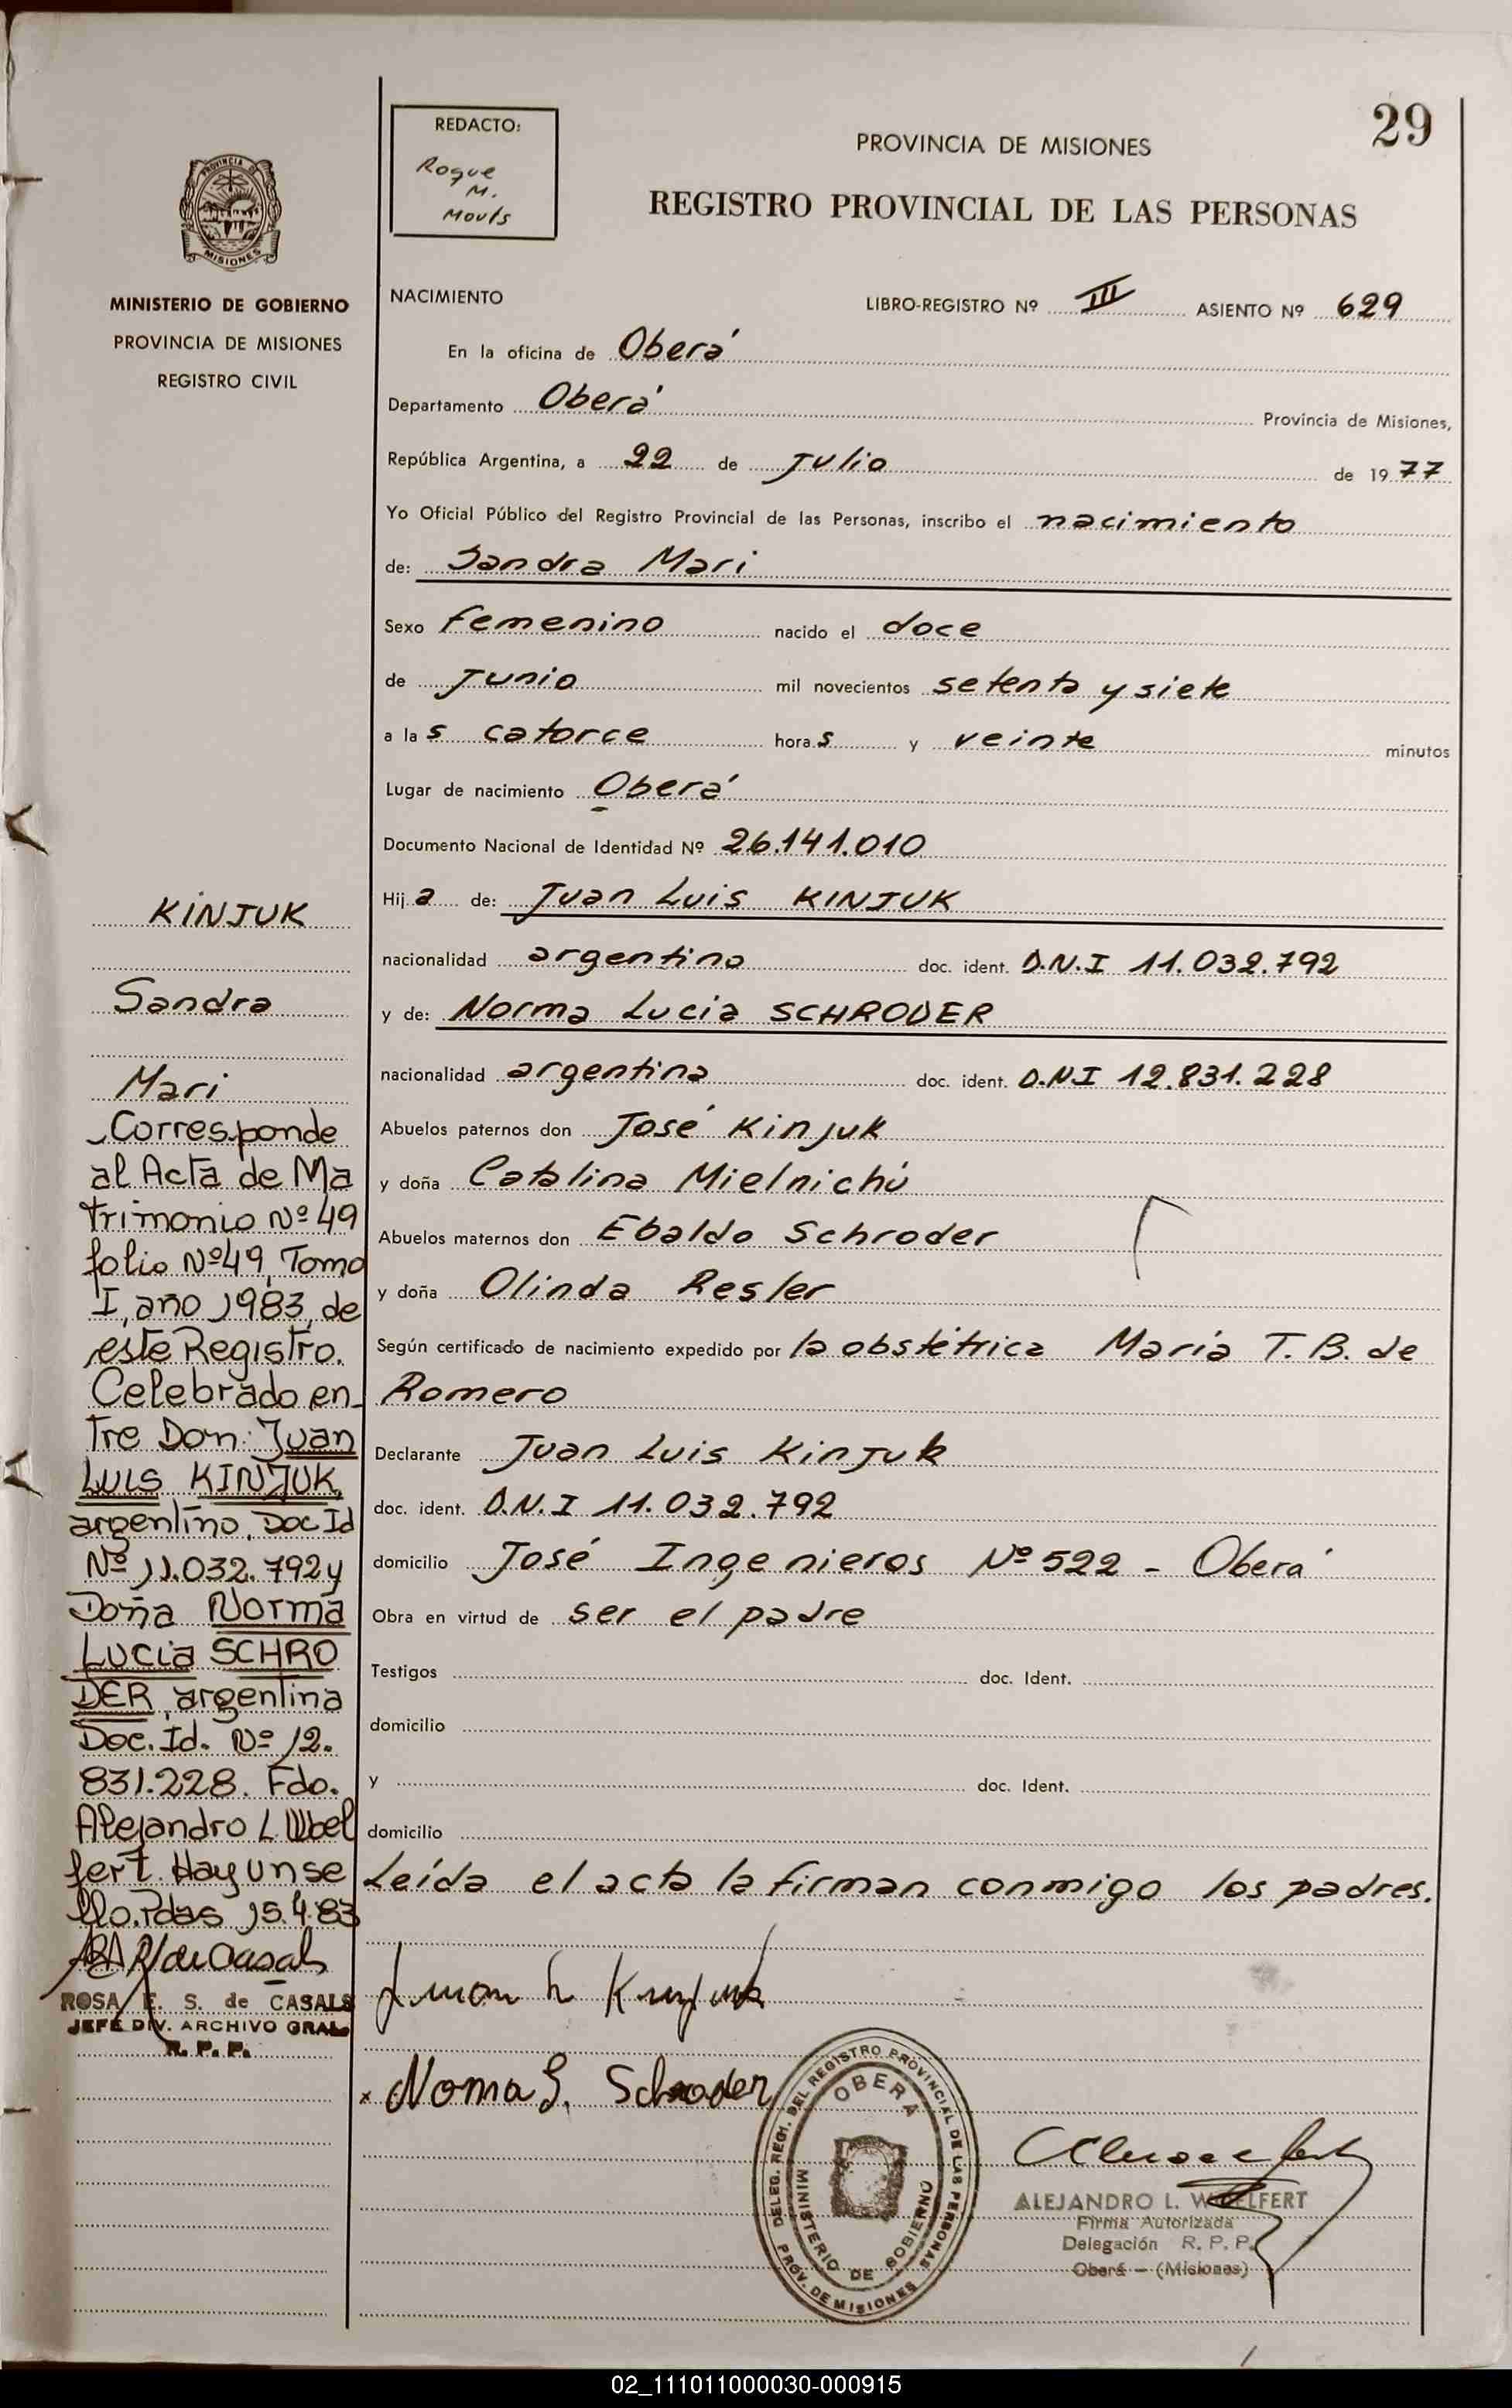 29
REDACTO:
Roque
M.
PROVINCIA DE MISIONES
REGISTRO PROVINCIAL DE LAS PERSONAS
PROVINCIA
MISIONES
MINISTERIO DE GOBIERNO
PROVINCIA DE MISIONES
REGISTRO CIVIL
NACIMIENTO LIBRO-REGISTRO Nº III ASIENTO Nº 629
En la oficina de Oberá
Departamento Oberá Provincia de Misiones,
República Argentina, a 22 de Julio de 1977
Yo Oficial Público del Registro Provincial de las Personas, inscribo el nacimiento
de: Sandra Mari
Sexo femenino nacido el doce
de Junio mil novecientos setenta y siete
a las catorce horas y veinte minutos
Lugar de nacimiento Oberá
Documento Nacional de Identidad Nº 26.141.010
Hija de: Juan Luis KINJUK
nacionalidad argentino doc. ident. D.N.I 11.032.792
y de: Norma Lucia SCHRODER
nacionalidad argentina doc. ident. D.N.I 12.831.228
Abuelos paternos don José Kinjuk
y doña Catalina Mielnichú
Abuelos maternos don Ebaldo Schroder
y doña Olinda Resler
Según certificado de nacimiento expedido por la obstétrica María T. B. de
Romero
Declarante Juan Luis Kinjuk
doc. ident. D.N.I 11.032.792
domicilio José Ingenieros Nº 522 - Oberá
Obra en virtud de ser el padre
Testigos doc. Ident.
domicilio
y doc. Ident.
domicilio
Leída el acta la firman conmigo los padres.
Juan L Kinjuk
x Norma L. Schroder
DELEG. REGI. DEL REGISTRO PROVINCIAL DE LAS PERSONAS
OBERA
MINISTERIO DE GOBIERNO
PROV. DE MISIONES
ALEJANDRO L. WOELFERT
Firma Autorizada
Delegación R. P. P.
Oberá - (Misiones)
KINJUK
Sandra
Mari
Corresponde
al Acta de Ma
trimonio Nº 49
folio Nº 49, Tomo
I, año 1983, de
este Registro.
Celebrado en-
tre Don: Juan
Luis KINJUK,
argentino, Doc Id
Nº 11.032.792 y
Doña Norma
Lucia SCHRO
DER, argentina
Doc. Id. Nº 12.
831.228. Fdo.
Alejandro L. Wbel
fert. Hay un se
llo. Pdas 15.4.83
ROSA E. S. de CASALS
JEFE DIV. ARCHIVO GRAL.
R. P. P.
02_111011000030-000915